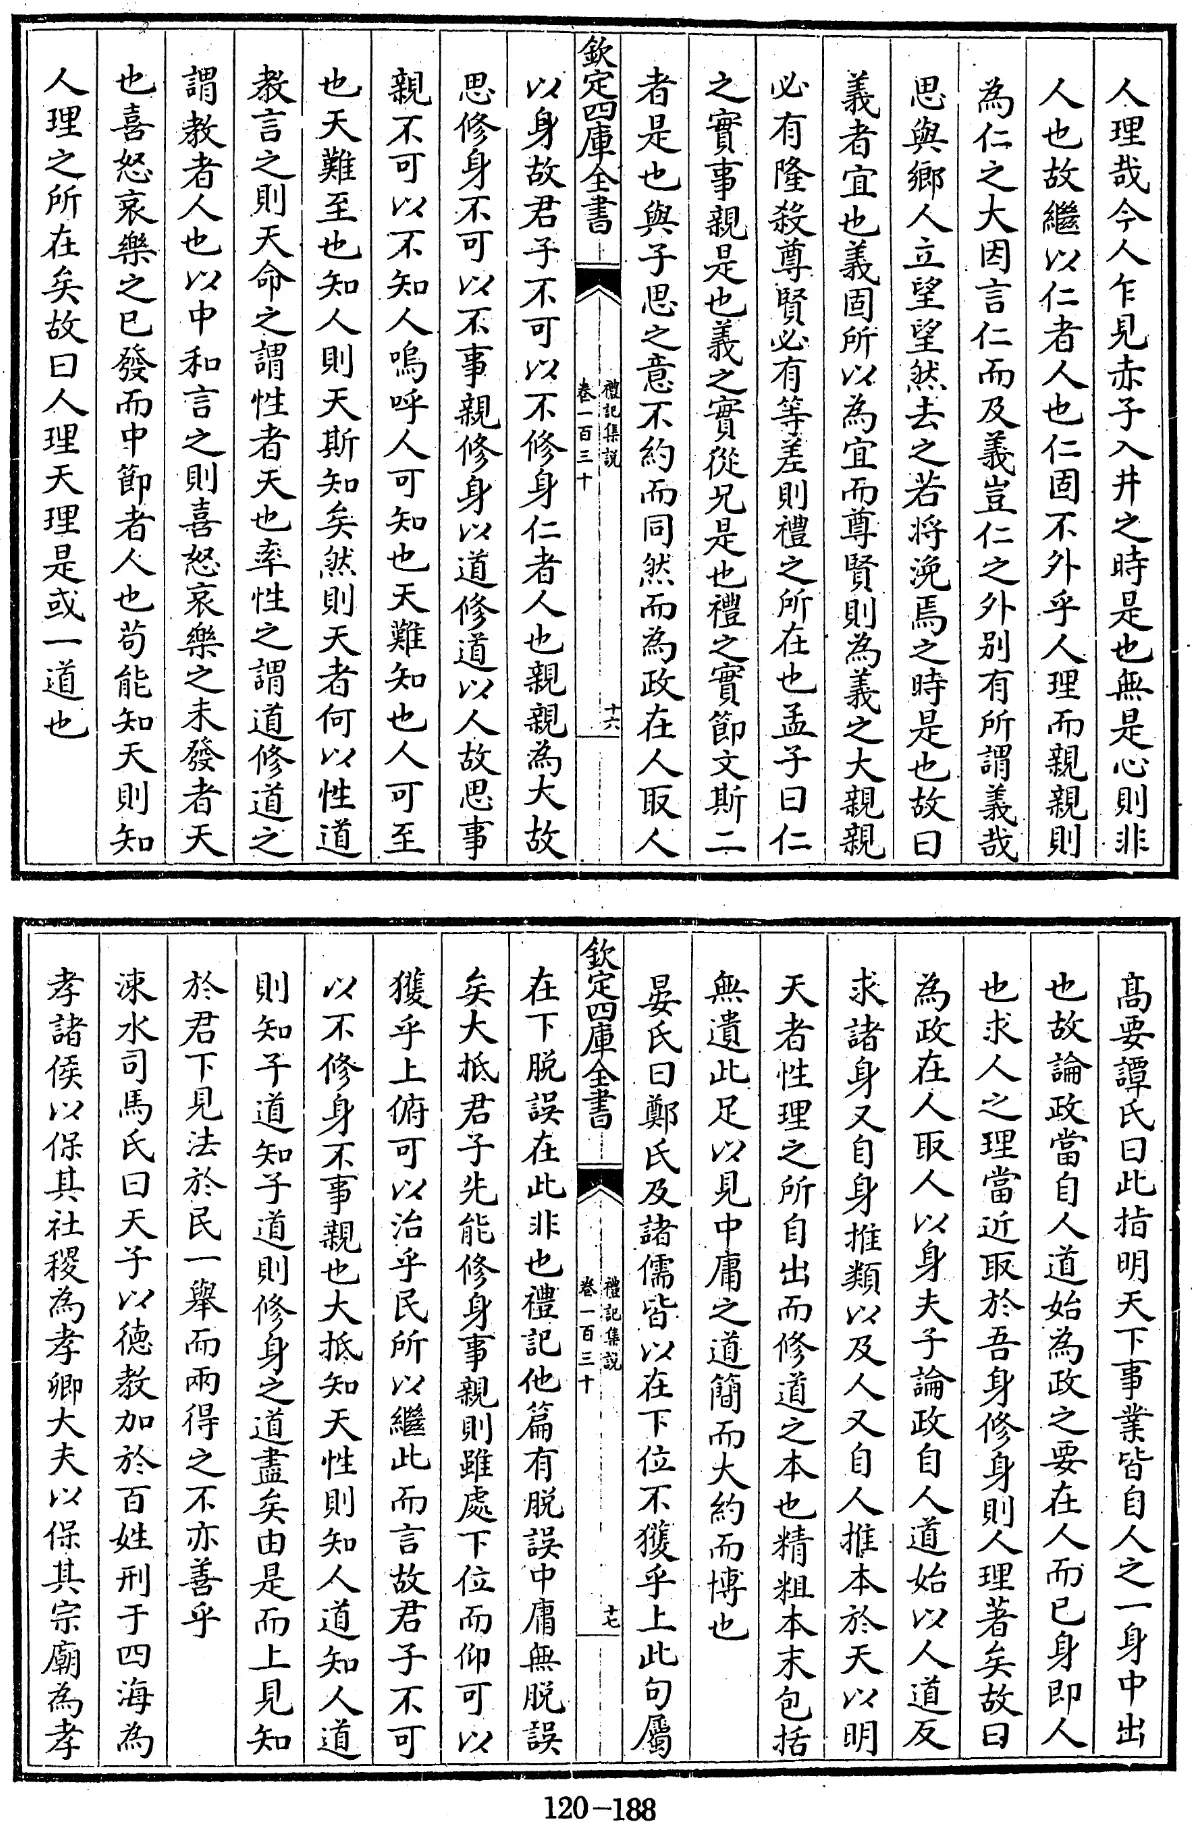 人理哉今人乍見赤子入井之時是也無是心則非
人也故繼以仁者人也仁固不外乎人理而親親則
為仁之大因言仁而及義豈仁之外别有所謂義哉
思與鄉人立望望然去之若將浼焉之時是也故曰
義者宜也義固所以為宜而尊賢則為義之大親親
必有隆殺尊賢必有等差則禮之所在也孟子曰仁
之實事親是也義之實從兄是也禮之實節文斯二
者是也與子思之意不約而同然而為政在人取人
欽定四庫全書
禮記集説
卷一百三十
十六
以身故君子不可以不修身仁者人也親親為大故
思修身不可以不事親修身以道修道以人故思事
親不可以不知人嗚呼人可知也天難知也人可至
也天難至也知人則天斯知矣然則天者何以性道
教言之則天命之謂性者天也率性之謂道修道之
謂教者人也以中和言之則喜怒哀樂之未發者天
也喜怒哀樂之已發而中節者人也苟能知天則知
人理之所在矣故曰人理天理是或一道也
高要譚氏曰此指明天下事業皆自人之一身中出
也故論政當自人道始為政之要在人而已身即人
也求人之理當近取於吾身修身則人理著矣故曰
為政在人取人以身夫子論政自人道始以人道反
求諸身又自身推類以及人又自人推本於天以明
天者性理之所自出而修道之本也精粗本末包括
無遺此足以見中庸之道簡而大約而博也
晏氏曰鄭氏及諸儒皆以在下位不獲乎上此句屬
欽定四庫全書
禮記集説
卷一百三十
十七
在下脱誤在此非也禮記他篇有脱誤中庸無脱誤
矣大抵君子先能修身事親則雖處下位而仰可以
獲乎上俯可以治乎民所以繼此而言故君子不可
以不修身不事親也大抵知天性則知人道知人道
則知子道知子道則修身之道盡矣由是而上見知
於君下見法於民一舉而兩得之不亦善乎
涑水司馬氏曰天子以德教加於百姓刑于四海為
孝諸侯以保其社稷為孝卿大夫以保其宗廟為孝
120-188